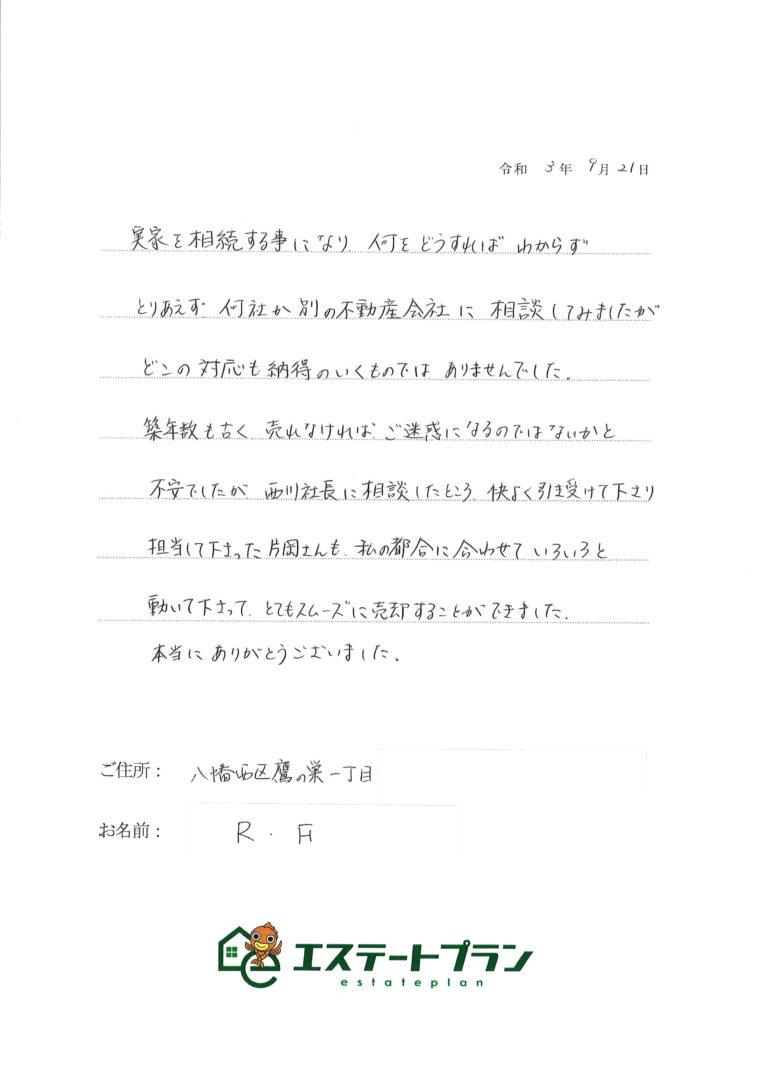 令和 3年 9月21日
実家を相続する事になり 何をどうすれば わからず
とりあえず 何社か別の不動産会社に 相談してみましたが
どこの対応も納得のいくものでは ありませんでした。
築年数も古く 売れなければ ご迷惑になるのではないかと
不安でしたが 西川社長に相談したところ 快よく引き受けて下さり
担当して下さった片岡さんも、私の都合に合わせていろいろと
動いて下さって、とてもスムーズに売却することができました。
本当にありがとうございました。
ご住所: 八幡西区鷹の巣一丁目
お名前: R . H
エステートプラン
estateplan